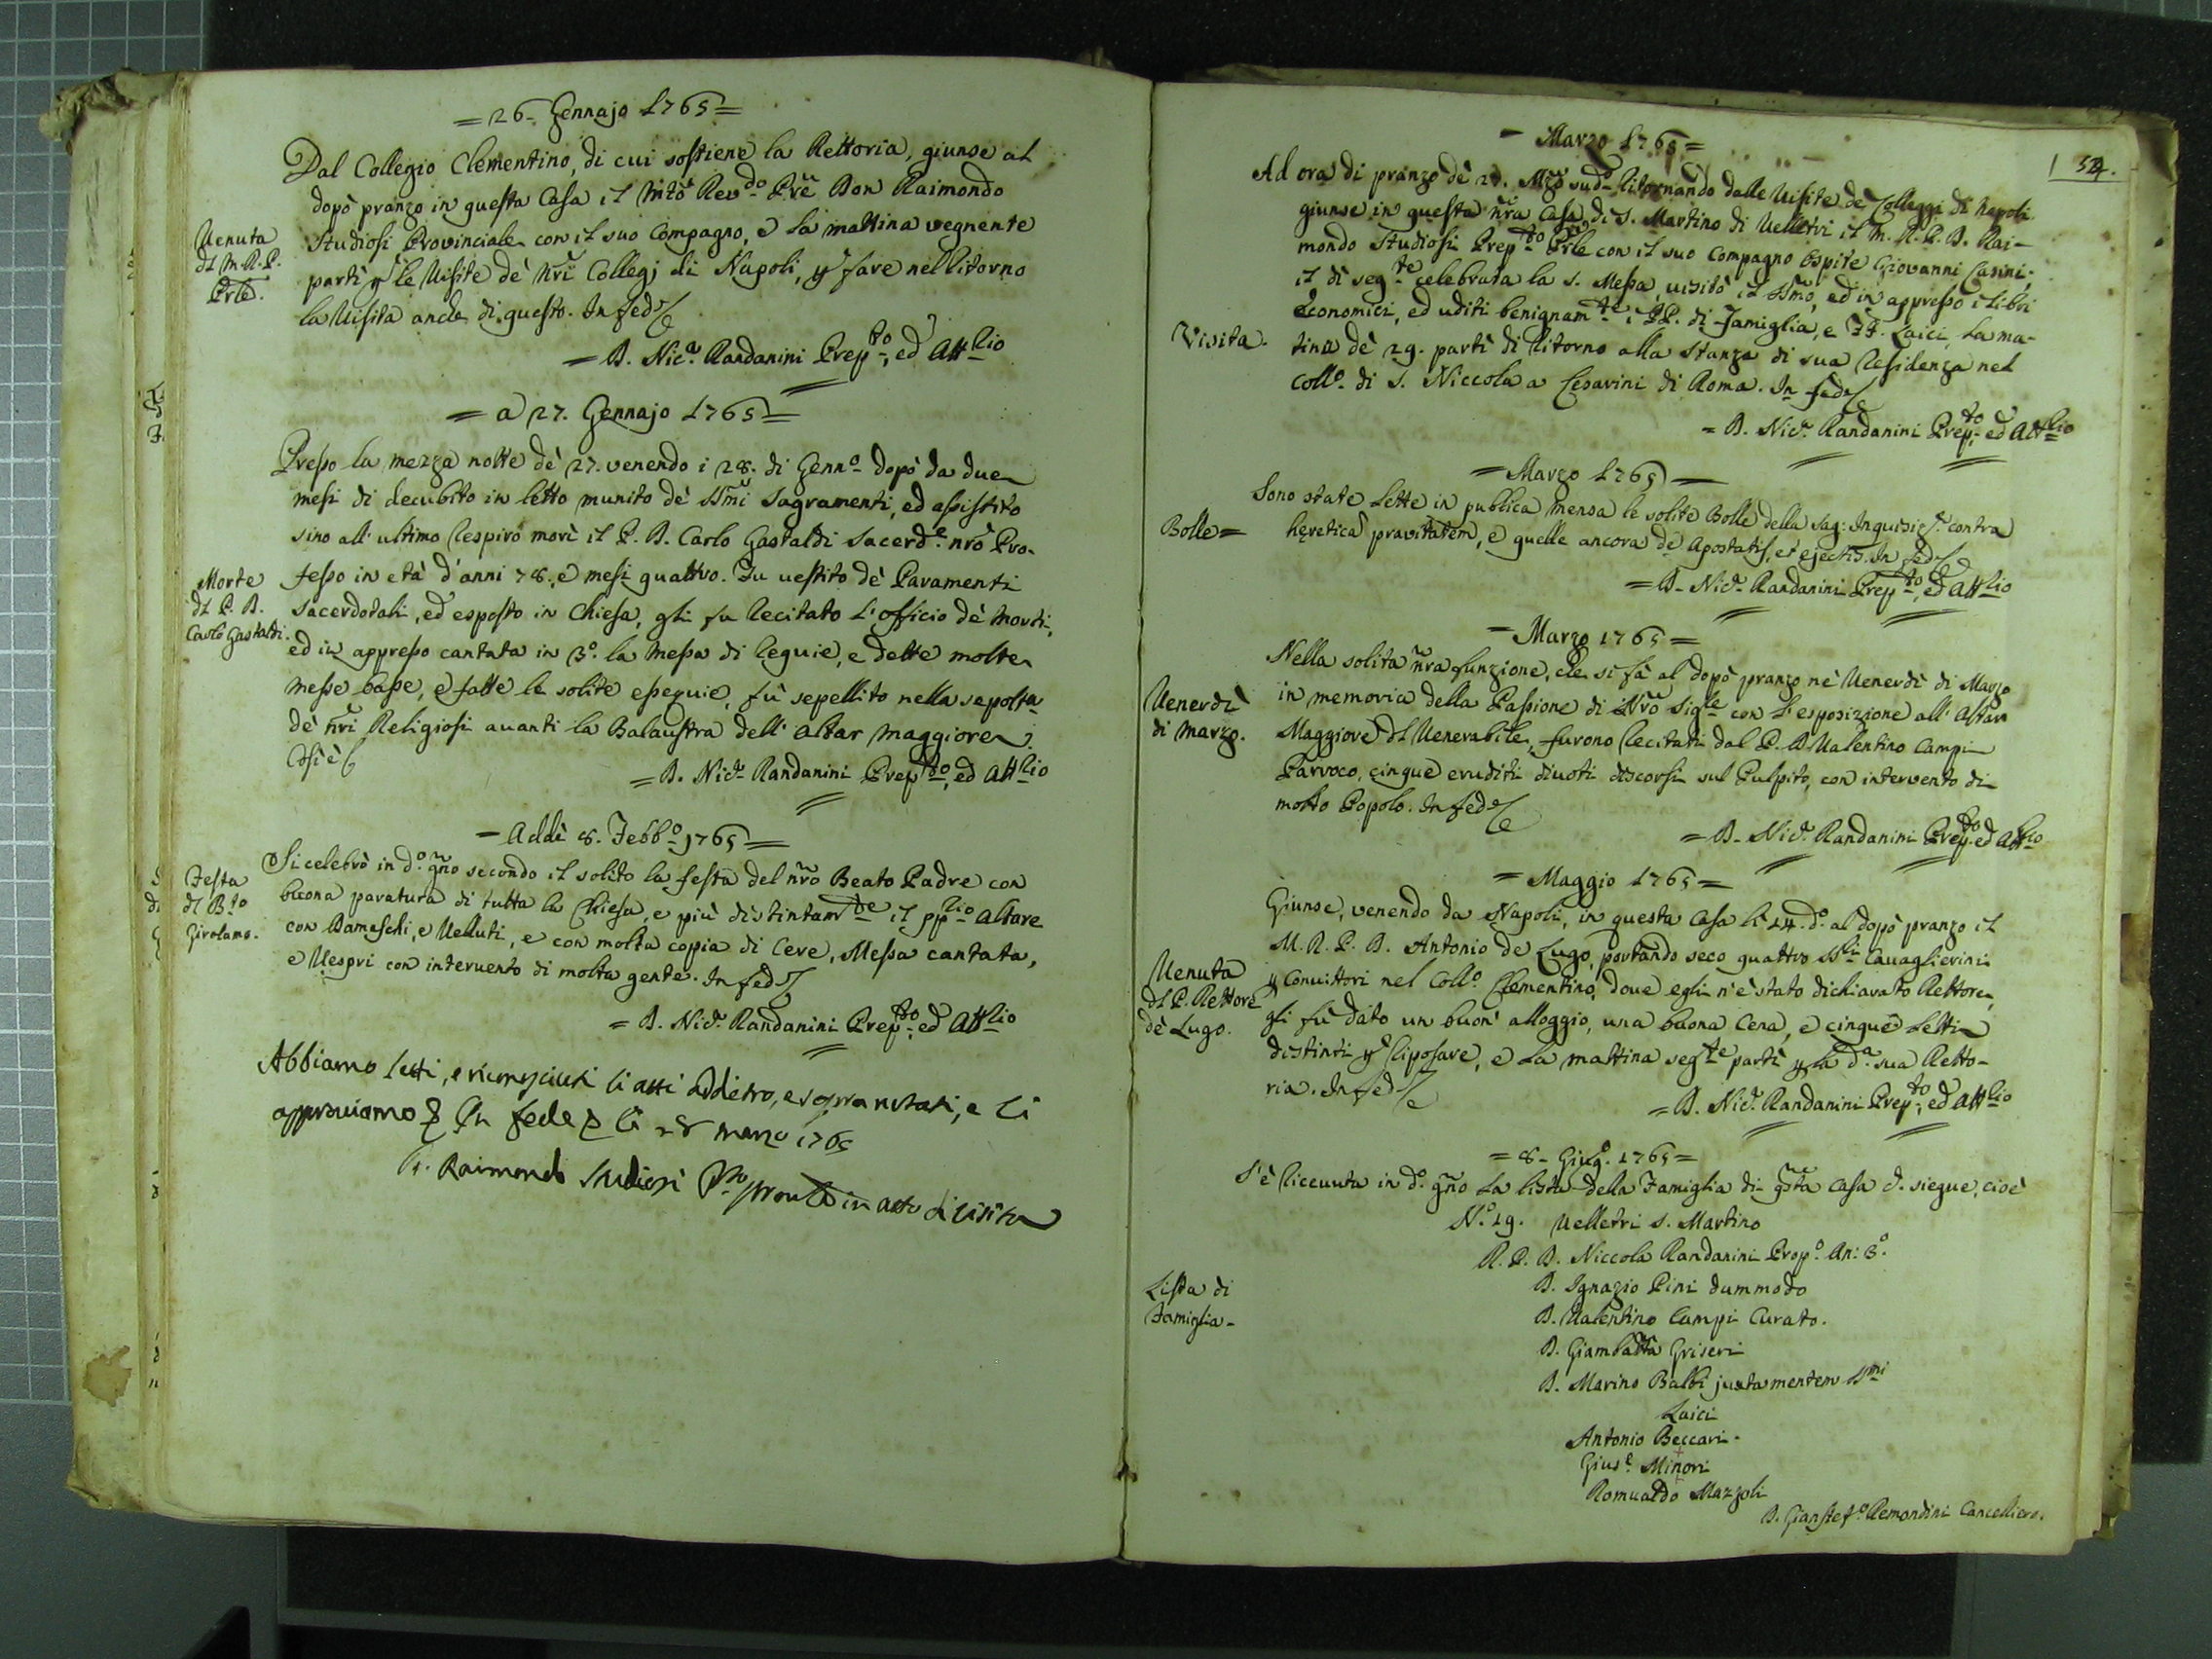 = 26. Gennajo 1765 =
Dal Collegio Clementino, di cui sostiene la Rettoria, giunse al
dopò pranzo in questa Casa il Mtõ Revdo Prẽ Don Raimondo
Studiosi Provinciale con il suo Compagno, e la mattina vegnente
partì p le Visite dè nrĩ Collegj di Napoli, p fare nel ritorno
la Visita anche di questo. In fede
Venuta
dl M.R.P.
Prle.
= D. Nica Randanini Prepto, ed Attlio
= a 27. Gennajo 1765 =
Presso la mezza notte dè 27. venendo i 28. di Genno dopò da due
mesi di decubito in letto munito dè SSmi Sagramenti, ed assistito
sino all' ultimo respiro morì il P. D. Carlo Gastaldi Sacerde nrõ Pro-
fesso in età d'anni 78., e mesi quattro. Fu vestito dè Paramenti
Sacerdotali, ed esposto in Chiesa, gli fu recitato l'officio dè Morti,
ed in appresso cantata in 3o. la Messa di requie, e dette molte
Messe basse, e fatte le solite esequie, fù sepellito nella sepoltra
dè nrĩ Religiosi avanti la Balaustra dell' Altar Maggiore.
Così è
Morte
dl P. D.
Carlo Gastaldi.
= D. Nica Randanini Prepto, ed Attlio
= Addì 8. Febbo 1765 =
Si celebrò in do. gño secondo il solito la festa del nrõ Beato Padre con
buona paratura di tutta la Chiesa, e più distintamte il pplio Altare
con Damaschi, e Velluti, e con molta copia di Cere, Messa cantata,
e Vespri con intervento di molta gente. In fede
Festa
dl Bto
Girolamo.
= D. Nica Randanini Prepto ed Attlio
Abbiamo letti, e riconosciuti li atti addietro, e sopra notati, e li
approviamo In fede li 28 marzo 1765
D. Raimondo Studiosi Provle in atto di visita
54.
= Marzo 1765 =
Ad ora di pranzo dè 27. Mzo sudo ritornando dalle Visite dè Colleggi di Napoli
giunse in questa nrã Casa di S. Martino di Velletri il M. R. P. D. Rai-
mondo Studiosi Prepto Prle con il suo compagno Ospite Giovanni Casini;
il dì segte celebrata la S. Messa, visitò il SSmo, ed in appresso i libri
economici, ed uditi benignamte i PP. di Famiglia, e FF. Laici, la ma-
tina dè 29. partì di ritorno alla stanza di sua residenza nel
Collo. di S. Niccola a Cesarini di Roma. In fede
Visita.
= D. Nica Randanini Prepto, ed Attlio
= Marzo 1765 =
Sono state lette in publica mensa le solite Bolle della Sag: Inquisize. contra
hęreticã pravitatem, e quelle ancora de Apostatis, et ejectis. In fede
Bolle =
= D. Nica Randanini Prepto, ed Attlio
= Marzo 1765 =
Nella solita nrã funzione, che si fà al dopò pranzo nè Venerdì di Marzo
in memoria della Passione di Nrõ Sigre con l'esposizione all' Altar
Maggiore dl Venerabile, furono recitati dal P. D. Valentino Campi
Parroco, cinque eruditi divoti discorsi sul Pulpito, con intervento di
molto Popolo. In fede
Venerdì
di Marzo.
= D. Nica Randanini Prepto. ed Attlio
= Maggio 1765 =
Giunse, venendo da Napoli, in questa Casa li 14. do. al dopò pranzo il
M. R. P. D. Antonio de Lugo, portando seco quattro SSri Cavaglierini
p Convittori nel Collo Clementino, dove egli n'è stato dichiarato Rettore,
gli fù dato un buon' alloggio, una buona Cena, e cinque letti
distinti p riposare, e la mattina segte partì p la da sua Retto-
ria. In fede
Venuta
dl P. Rettore
dè Lugo.
= D. Nica Randanini Prepto, ed Attlio
= 8. Giugo. 1765 =
S'è ricevuta in do. gño la lista della Famiglia di qsta Casa C. siegue, cioè
No. 19. Velletri S. Martino
R. P. D. Niccola Randanini Prepo. An: 3o.
D. Ignazio Pini dummodo
D. Valentino Campi Curato.
D. Giambatta Griseri
D. Marino Balbi juxta mentem SSmi
Laici
Antonio Beccari.
Giuse. Minori
Romualdo Mazzoli
Lista di
Famiglia.
D. Gianstefo Remondini Cancelliero.